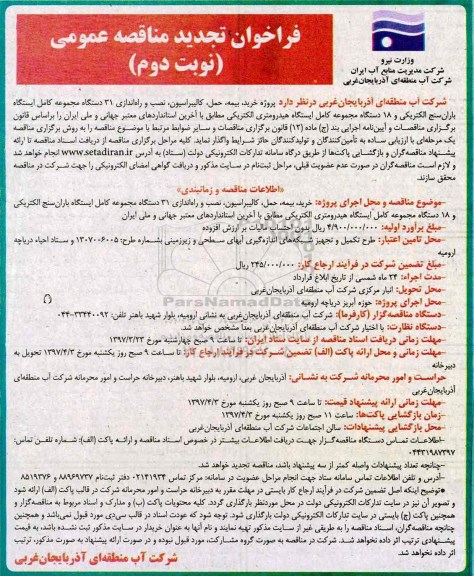 فراخوان تجدید مناقصه عمومی
(نوبت دوم)
وزارت نیرو
شرکت مدیریت منابع آب ایران
شرکت آب منطقه‌ای آذربایجان‌غربی
شرکت آب منطقه‌ای آذربایجان‌غربی درنظر دارد پروژه خرید، بیمه، حمل، کالیبراسیون، نصب و راه‌اندازی ۳۱ دستگاه مجموعه کامل ایستگاه
باران‌سنج الکتریکی و ۱۸ دستگاه مجموعه کامل ایستگاه هیدرومتری الکتریکی مطابق با آخرین استانداردهای معتبر جهانی و ملی ایران را براساس قانون
برگزاری مناقصات و آیین‌نامه اجرایی بند (ج) ماده (۱۲) قانون برگزاری مناقصات و سایر ضوابط مرتبط با موضوع مناقصه را به روش برگزاری مناقصه
یک مرحله‌ای با ارزیابی ساده به تأمین‌کنندگان و تولیدکنندگان حائز شرایط واگذار نماید. کلیه مراحل برگزاری مناقصه از دریافت اسناد مناقصه تا ارائه
پیشنهاد مناقصه‌گران و بازگشایی پاکت‌ها از طریق درگاه سامانه تدارکات الکترونیکی دولت (ستاد) به آدرس www.setadiran.ir انجام خواهد شد
و لازم است مناقصه‌گران در صورت عدم عضویت قبلی، مراحل ثبت‌نام در سایت مذکور و دریافت گواهی امضای الکترونیکی را جهت شرکت در مناقصه
محقق سازند.
«اطلاعات مناقصه و زمانبندی»
-موضوع مناقصه و محل اجرای پروژه: خرید، بیمه، حمل، کالیبراسیون، نصب و راه‌اندازی ۳۱ دستگاه مجموعه کامل ایستگاه باران‌سنج الکتریکی
و ۱۸ دستگاه مجموعه کامل ایستگاه هیدرومتری الکتریکی مطابق با آخرین استانداردهای معتبر جهانی و ملی ایران
-مبلغ برآورد اولیه: ۴/۹۰۰/۰۰۰/۰۰۰ ریال بدون احتساب مالیات بر ارزش افزوده
-محل تامین اعتبار: طرح تکمیل و تجهیز شبکه‌های اندازه‌گیری آبهای سطحی و زیرزمینی بشماره طرح: ۱۳۰۷۰۰۶۰۰۵ و ستاد احیاء دریاچه
ارومیه
-مبلغ تضمین شرکت در فرآیند ارجاع کار: ۲۴۵/۰۰۰/۰۰۰ ریال
-مدت اجراء: ۲۴ ماه شمسی از تاریخ ابلاغ قرارداد
-محل تحویل: انبار مرکزی شرکت آب منطقه‌ای آذربایجان‌غربی
-محل اجرای پروژه: حوزه آبریز دریاچه ارومیه
-دستگاه مناقصه‌گزار (کارفرما): شرکت آب منطقه‌ای آذربایجان‌غربی به نشانی ارومیه، بلوار شهید باهنر تلفن: ۳۳۴۴۰۰۹۲-۰۴۴
-دستگاه نظارت: با اختیار شرکت آب منطقه‌ای آذربایجان‌غربی بعدا مشخص خواهد شد.
-مهلت زمانی دریافت اسناد مناقصه از سایت ستاد ایران: تا ساعت ۹ صبح چهارشنبه مورخ ۱۳۹۷/۳/۲۳
-مهلت زمانی و محل ارائه پاکت (الف) تضمین شرکت در فرآیند ارجاع کار: تا ساعت ۹ صبح روز یکشنبه مورخ ۱۳۹۷/۴/۳ تحویل به
دبیرخانه
حراست و امور محرمانه شرکت به نشانی: آذربایجان غربی، ارومیه، بلوار شهید باهنر، دبیرخانه حراست و امور محرمانه شرکت آب منطقه‌ای
آذربایجان‌غربی
-مهلت زمانی ارائه پیشنهاد قیمت: تا ساعت ۹ صبح روز یکشنبه مورخ ۱۳۹۷/۴/۳
-زمان بازگشایی پاکت‌ها: ساعت ۱۱ صبح روز یکشنبه مورخ ۱۳۹۷/۴/۳
-محل بازگشایی پیشنهادات: سالن اجتماعات شرکت آب منطقه‌ای آذربایجان‌غربی
-اطلاعات تماس دستگاه مناقصه‌گزار جهت دریافت اطلاعات بیشتر در خصوص اسناد مناقصه و ارائه پاکت (الف): شماره تلفن تماس:
۰۴۴۳۱۹۸۷۳۹۷
-چنانچه تعداد پیشنهادات واصله کمتر از سه پیشنهاد باشد، مناقصه تجدید خواهد شد.
-آدرس و تلفن اطلاعات تماس سامانه ستاد جهت انجام مراحل عضویت در سامانه: مرکز تماس ۰۲۱۴۱۹۳۴ دفتر ثبت‌نام ۸۸۹۶۹۷۳۷ و ۸۵۱۹۳۷۶۸
●توضیح اینکه اصل تضمین شرکت در فرآیند ارجاع کار بایستی در مهلت مقرر به دبیرخانه حراست و امور محرمانه شرکت در قالب پاکت (الف) ارائه شود
و تصویر آن نیز در سایت تدارکات الکترونیکی دولت در محل موردنظر بارگذاری گردد. کلیه محتویات پاکت (ب) و مدارک و اسناد مربوط به مناقصه‌گزار و
همچنین پاکت (ج) بایستی در سایت تدارکات الکترونیکی دولت بارگذاری شود. توجه شود که عودت اسناد در قالب سی‌دی مورد قبول نمی‌باشد و همچنین
چنانچه مناقصه‌گران، اسناد مناقصه را به طریقی غیر از سایت مذکور تهیه نمایند و نام آنها به عنوان خریدار در سایت مذکور ثبت نشده باشد، به قیمت
پیشنهادی ترتیب اثر داده نخواهد شد. شرکت در مناقصه به صورت گروه مشارکت، مورد قبول نبوده و در صورت ارائه پیشنهاد به صورت مذکور، ترتیب
اثر داده نخواهد شد.
شرکت آب منطقه‌ای آذربایجان‌غربی
ParsNamadData